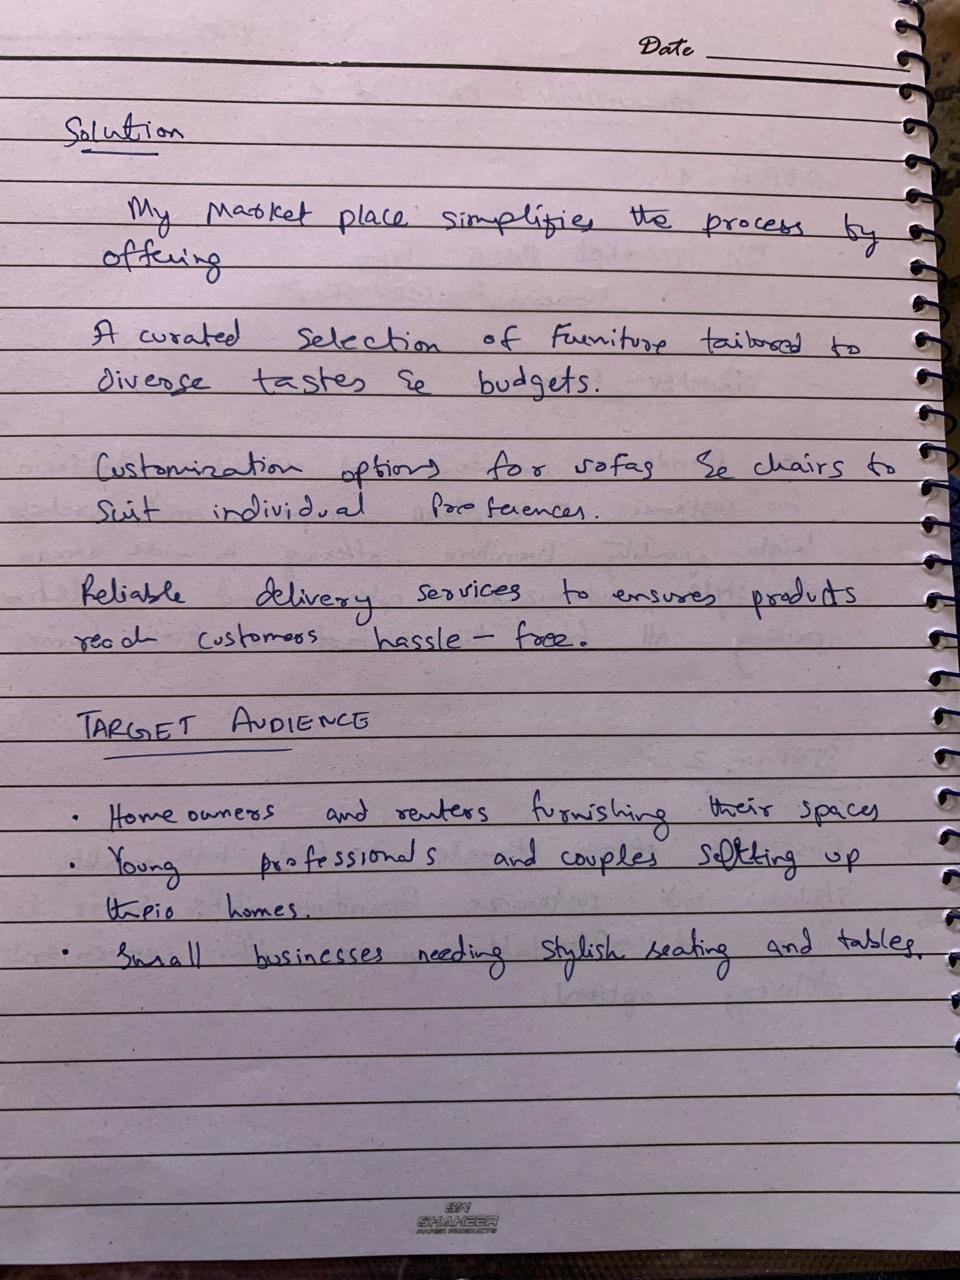 Date
Solution
My Market place simplifies the process by
offering
A curated Selection of Furniture tailored to
diverse tastes & budgets.
Customization options for sofas & chairs to
Suit individual Preferences.
Reliable delivery services to ensures products
reach customers hassle - free.
TARGET AUDIENCE
• Home owners and renters furnishing their spaces
• Young professionals and couples settting up
their homes.
• Small businesses needing stylish seating and tables.
SN
SHAHEER
PAPER PRODUCTS